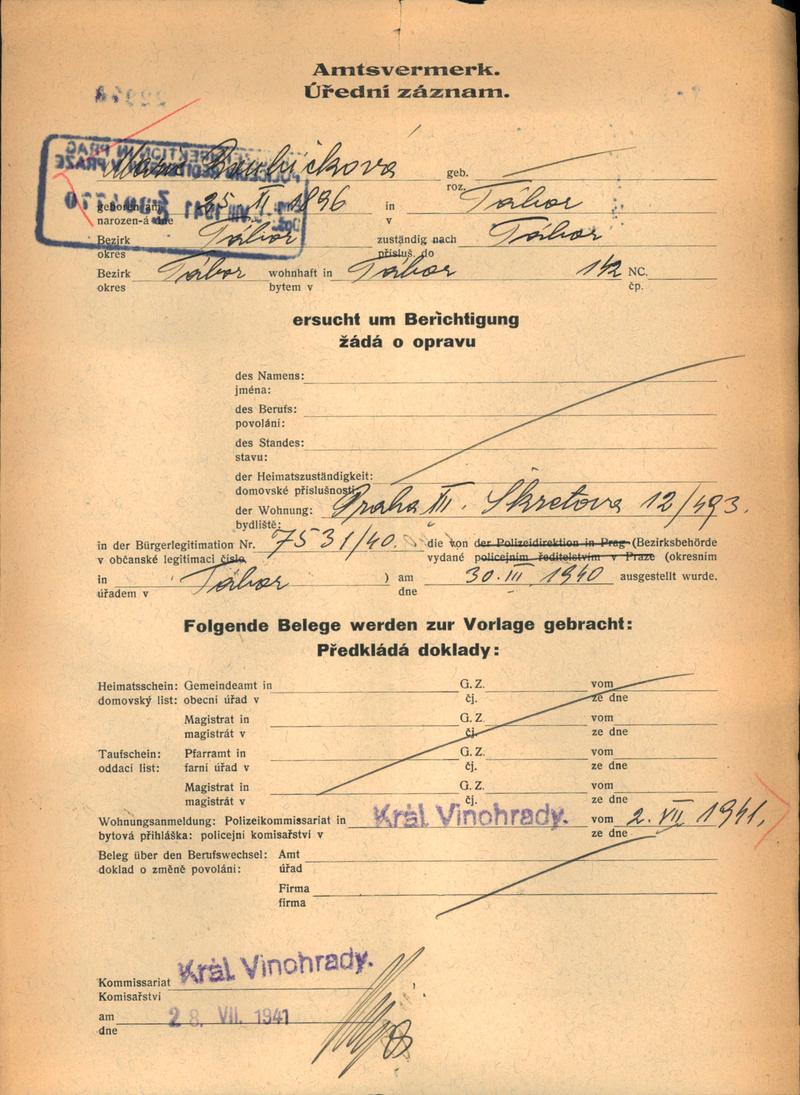 Amtsvermerk.
Úřední záznam.
geb.
roz.
geboren am 25. II 1896 in Tábor
narozen-á dne v
Bezirk Tábor zuständig nach Tábor
okres přísluš. do
Bezirk Tábor wohnhaft in Tábor 142 NC.
okres bytem v čp.
ersucht um Berichtigung
žádá o opravu
des Namens:
jména:
des Berufs:
povolání:
des Standes:
stavu:
der Heimatszuständigkeit:
domovské příslušnosti:
der Wohnung: Praha XII. Škretova 12/493.
bydliště:
in der Bürgerlegitimation Nr. 7531/40. die von der Polizeidirektion in Prag (Bezirksbehörde
v občanské legitimaci číslo vydané policejním ředitelstvím v Praze (okresním
in Tábor ) am 30. III. 1940 ausgestellt wurde.
úřadem v dne
Folgende Belege werden zur Vorlage gebracht:
Předkládá doklady:
Heimatsschein: Gemeindeamt in G. Z. vom
domovský list: obecní úřad v čj. ze dne
Magistrat in G. Z. vom
magistrát v čj. ze dne
Taufschein: Pfarramt in G. Z. vom
oddací list: farní úřad v čj. ze dne
Magistrat in G. Z. vom
magistrát v čj. ze dne
Wohnungsanmeldung: Polizeikommissariat in Král. Vinohrady. vom 2. VII 1941.
bytová přihláška: policejní komisařství v ze dne
Beleg über den Berufswechsel: Amt
doklad o změně povolání: úřad
Firma
firma
Kommissariat Král. Vinohrady.
Komisařství
am 28. VII. 1941
dne